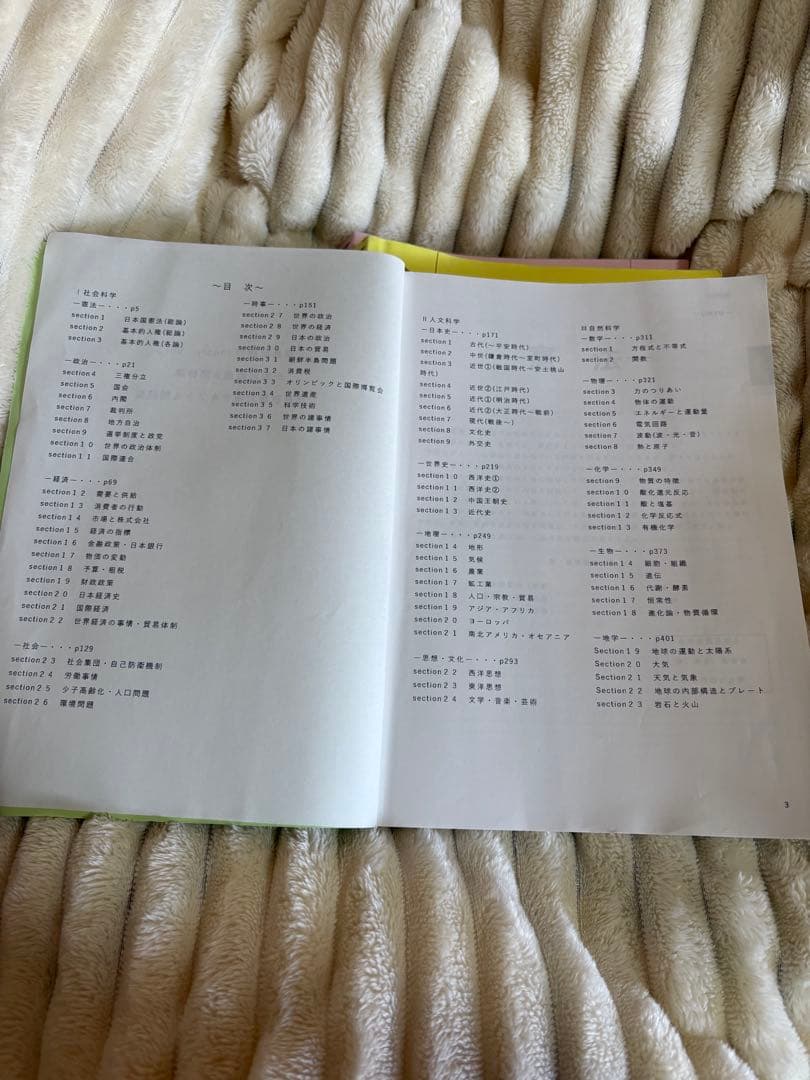 ～目 次～
I 社会科学
―憲法―・・・p5
section1 日本国憲法(総論)
section2 基本的人権(総論)
section3 基本的人権(各論)
―政治―・・・p21
section4 三権分立
section5 国会
section6 内閣
section7 裁判所
section8 地方自治
section9 選挙制度と政党
section10 世界の政治体制
section11 国際連合
―経済―・・・p69
section12 需要と供給
section13 消費者の行動
section14 市場と株式会社
section15 経済の指標
section16 金融政策・日本銀行
section17 物価の変動
section18 予算・租税
section19 財政政策
section20 日本経済史
section21 国際経済
section22 世界経済の事情・貿易体制
―社会―・・・p129
section23 社会集団・自己防衛機制
section24 労働事情
section25 少子高齢化・人口問題
section26 環境問題
―時事―・・・p151
section27 世界の政治
section28 世界の経済
section29 日本の政治
section30 日本の貿易
section31 朝鮮半島問題
section32 消費税
section33 オリンピックと国際博覧会
section34 世界遺産
section35 科学技術
section36 世界の諸事情
section37 日本の諸事情
II 人文科学
―日本史―・・・p171
section1 古代(～平安時代)
section2 中世(鎌倉時代～室町時代)
section3 近世①(戦国時代～安土桃山
時代)
section4 近世②(江戸時代)
section5 近代①(明治時代)
section6 近代②(大正時代～戦前)
section7 現代(戦後～)
section8 文化史
section9 外交史
―世界史―・・・p219
section10 西洋史①
section11 西洋史②
section12 中国王朝史
section13 近代史
―地理―・・・p249
section14 地形
section15 気候
section16 農業
section17 鉱工業
section18 人口・宗教・貿易
section19 アジア・アフリカ
section20 ヨーロッパ
section21 南北アメリカ・オセアニア
―思想・文化―・・・p293
section22 西洋思想
section23 東洋思想
section24 文学・音楽・芸術
III 自然科学
―数学―・・・p311
section1 方程式と不等式
section2 関数
―物理―・・・p321
section3 力のつりあい
section4 物体の運動
section5 エネルギーと運動量
section6 電気回路
section7 波動(波・光・音)
section8 熱と原子
―化学―・・・p349
section9 物質の特徴
section10 酸化還元反応
section11 酸と塩基
section12 化学反応式
section13 有機化学
―生物―・・・p373
section14 細胞・組織
section15 遺伝
section16 代謝・酵素
section17 恒常性
section18 進化論・物質循環
―地学―・・・p401
Section19 地球の運動と太陽系
Section20 大気
Section21 天気と気象
Section22 地球の内部構造とプレート
Section23 岩石と火山
3